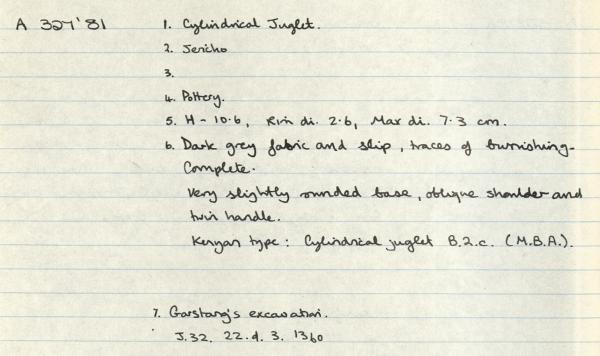 A 327'81
1. Cylindrical Juglet.
2. Jericho
3.
4. Pottery.
5. H - 10.6, Rim di. 2.6, Max di. 7.3 cm.
6. Dark grey fabric and slip, traces of burnishing -
Complete.
Very slightly rounded base, oblique shoulder and
twin handle.
Kenyan type: Cylindrical juglet B.2.c. (M.B.A.).
7. Garstang's excavation.
J.32. 22.d.3. 1360